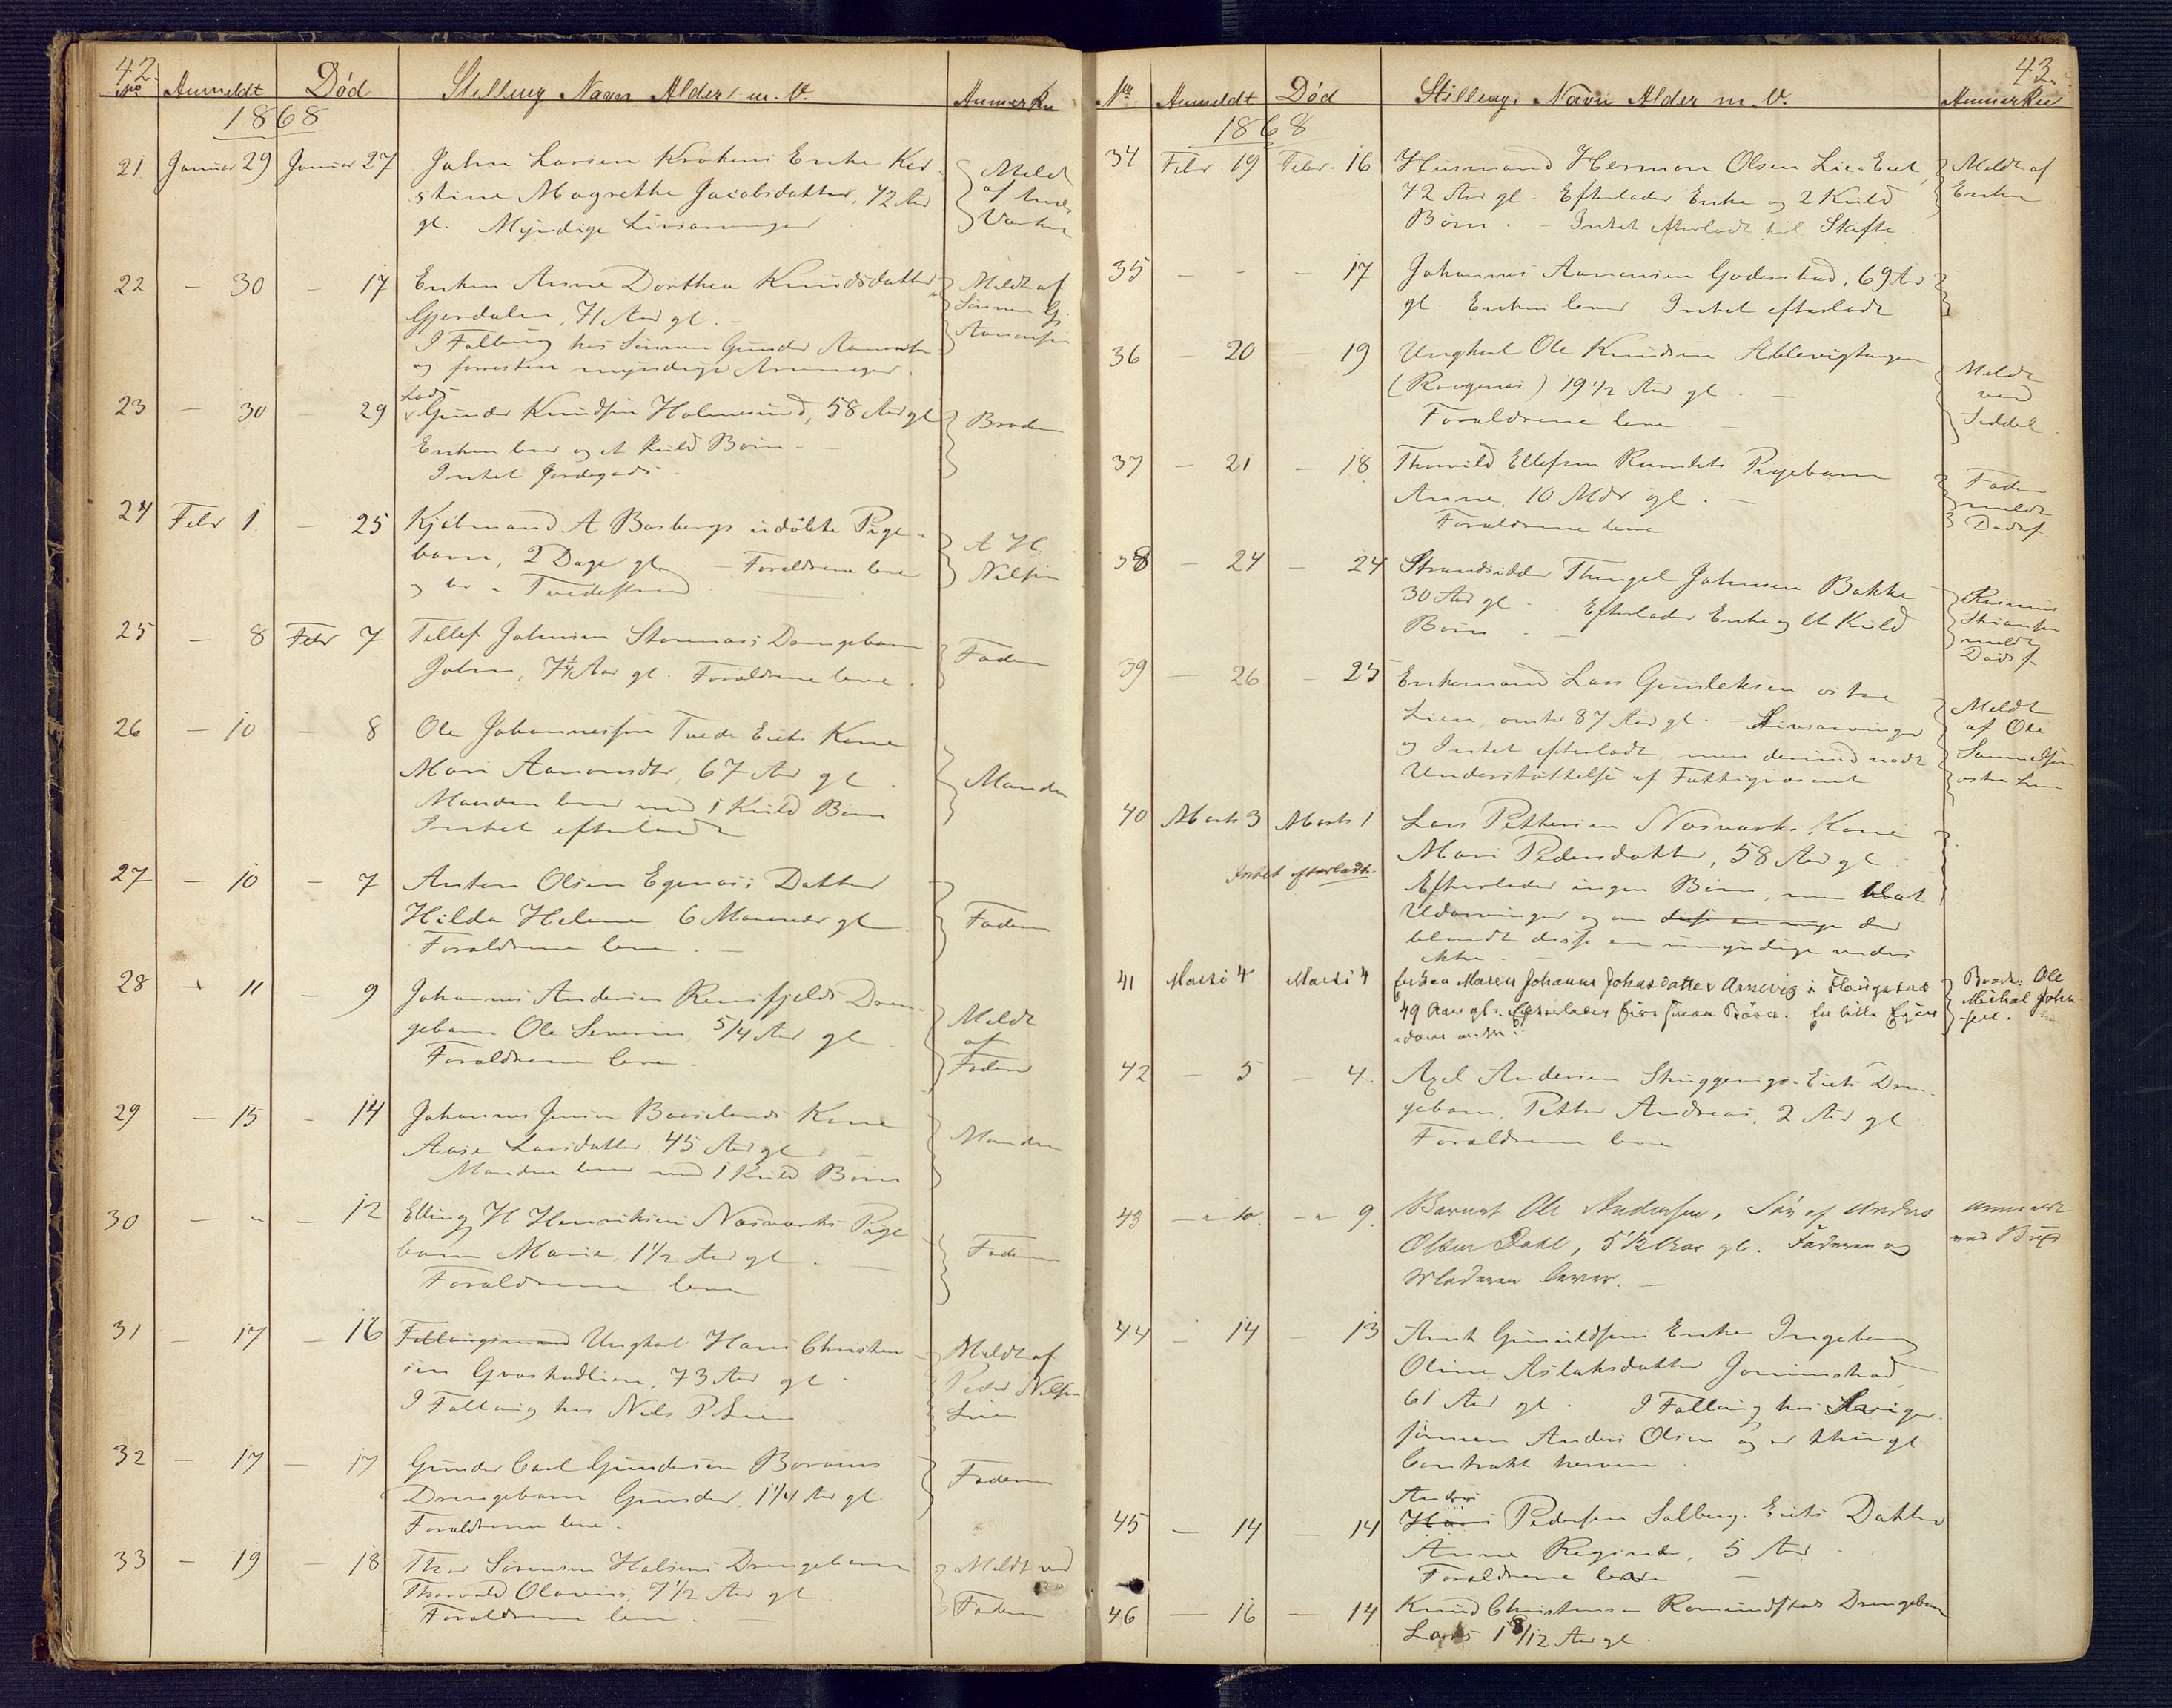 42.
No Anmeldt Död Stilling Navn Alder m. V. Anmerkn
1868
21 Januar 29 Januar 27 John Larsen Krokens Enke Ker-
stine Magrethe Jacobsdatter, 72 Aar
gl. Myndige Livsarvinger
Meldt
af
22 – 30 – 17 Enken Anne Dorthea Knudsdatter
Gjerdalen, 71 Aar gl. –
I Follaug hos Sønnen Gunder Aanonsen
og forresten myndige Arvinger
Meldt af
Sønnen G
Aanonsen
23 – 30 – 29 Lods
Gunder Knudsen Holmesund, 58 Aar gl
Enken lever og et Kuld Børn –
Intet Jordegods
Broder
24 Febr 1 – 25 Kjøbmand A Bosbergs udøbte Pige-
barn, 2 Dage gl. – Forældrene leve
og bo i Tvedestrand
A H.
Nilsen
25 – 8 Febr 7 Tellef Johnsen Storenæs's Drengebarn
John, 7 1/4 Aar gl. Forældrene leve.
Faderen
26 – 10 – 8 Ole Johannessen Tvede Eiets Kone
Mari Aanonsdtr, 67 Aar gl.
Manden lever med 1 Kuld Børn
Intet efterladt
Manden
27 – 10 – 7 Anton Olsen Egenæs's Datter
Hilda Helene 6 Maaneder gl.
Forældrene leve. –
Faderen
28 – 11 – 9 Johannes Andersen Rensfjelds Dren-
gebarn Ole Severin, 5/4 Aar gl.
Forældrene leve.
Meldt
af
Faderen
29 – 15 – 14 Johannes Jensen Boeslands Kone
Aase Larsdatter, 45 Aar gl.
Manden lever med 1 Kuld Børn
Manden
30 – " – 12 Elling H Henriksens Næsværks Pige-
barn Marie, 1 1/2 Aar gl. –
Forældrene leve
Faderen
31 – 17 – 16 Follaugsmand Ungkarl Hans Christen-
sen Gvashadlien, 73 Aar gl.
I Follaug hos Nils P. Lien
Meldt af
Peder Nilsen
Lien
32 – 17 – 17 Gunder Carl Gundersen Borøens
Drengebarn Gunder, 1 1/4 Aar gl
Forældrene leve.
Faderen
33 – 19 – 18 Thor Sørensen Holsens Drengebarn
Thorvald Olavius, 7 1/2 Aar gl
Forældrene leve.
Meldt ved
Faderen
43.
No Anmeldt Död Stilling, Navn Alder m. V. Anmerkn
1868
34 Febr 19 Febr. 16 Husmand Herman Olsen Lien Eiet,
72 Aar gl. Efterlader Enke og 2 Kuld
Børn. – Intet efterladt til Skifte.
Meldt af
Enken
35 – - – 17 Johannes Aanonsen Goderstad, 69 Aar
gl. Enken lever Intet efterladt
36 – 20 – 19 Ungkarl Ole Knudsen Ablevigtangen
() 19 1/2 Aar gl. –
Forældrene leve. –
Meldt
ved
Seddel
37 – 21 – 18 Thorvild Ellefsen Ramlets Pigebarn
Anne, 10 Mdr gl. –
Forældrene leve
Faderen
meldt
Dødsf.
38 – 24 – 24 Strandsidder Thengel Johnsen Bakke
30 Aar gl. Efterlader Enke og Et Kuld
Børn –
meldt
Dødsf.
39 – 26 – 25 Enkemand Lars Gunleksen østre
Lien, omtr 87 Aar gl. – Livsarvinger
og Intet efterladt, men derimod nydt
Understøttelse af Fattigvæsenet
Meldt
af Ole
Samuelsen
østre Lien
40 Marts 3 Marts 1 Lars Pettersen Næsværks Kone
Mari Pedersdatter, 58 Aar gl.
Intet efterladt.
Efterlader ingen Børn, men blot
Udarvinger og om disse ere nogle der
blandt disse ere umyndige vides
ikke –
41 Marts 4 Marts 4 Enken Maren Johanne Johnsdatter Arnevig i Flougstad
49 Aar gl. Efterlader fire smaa Børn. En lille Ejen-
dom
Broder Ole
Michal John-
sen.
42 – 5 – 4. Axel Andersen Skuggevigs-Eiets Dren-
gebarn, Petter Andreas, 2 Aar gl.
Forældrene leve
43 – " 10. – " 9. Barnet Ole Andersen, Søn af Anders
Olsen Dahl, 5 1/2 Aar gl. Faderen og
Moderen lever. –
Anmeldt
ved Brev
44 – 14 – 13 Arnt Gunuldsens Enke Ingeborg
Oline Aslaksdatter Jorunstad,
61 Aar gl. I Follaug hos Sviger-
sønnen Anders Olsen og er thingl.
Contrakt herom
45 – 14 – 14 Anders
Hans Pedersen Solberg-Eiets Datter
Anne Regine, 5 Aar.
Forældrene leve –
46 – 16 – 14 Knud Christensen Romundstad Drengebarn
Lars 1 8/12 Aar gl.